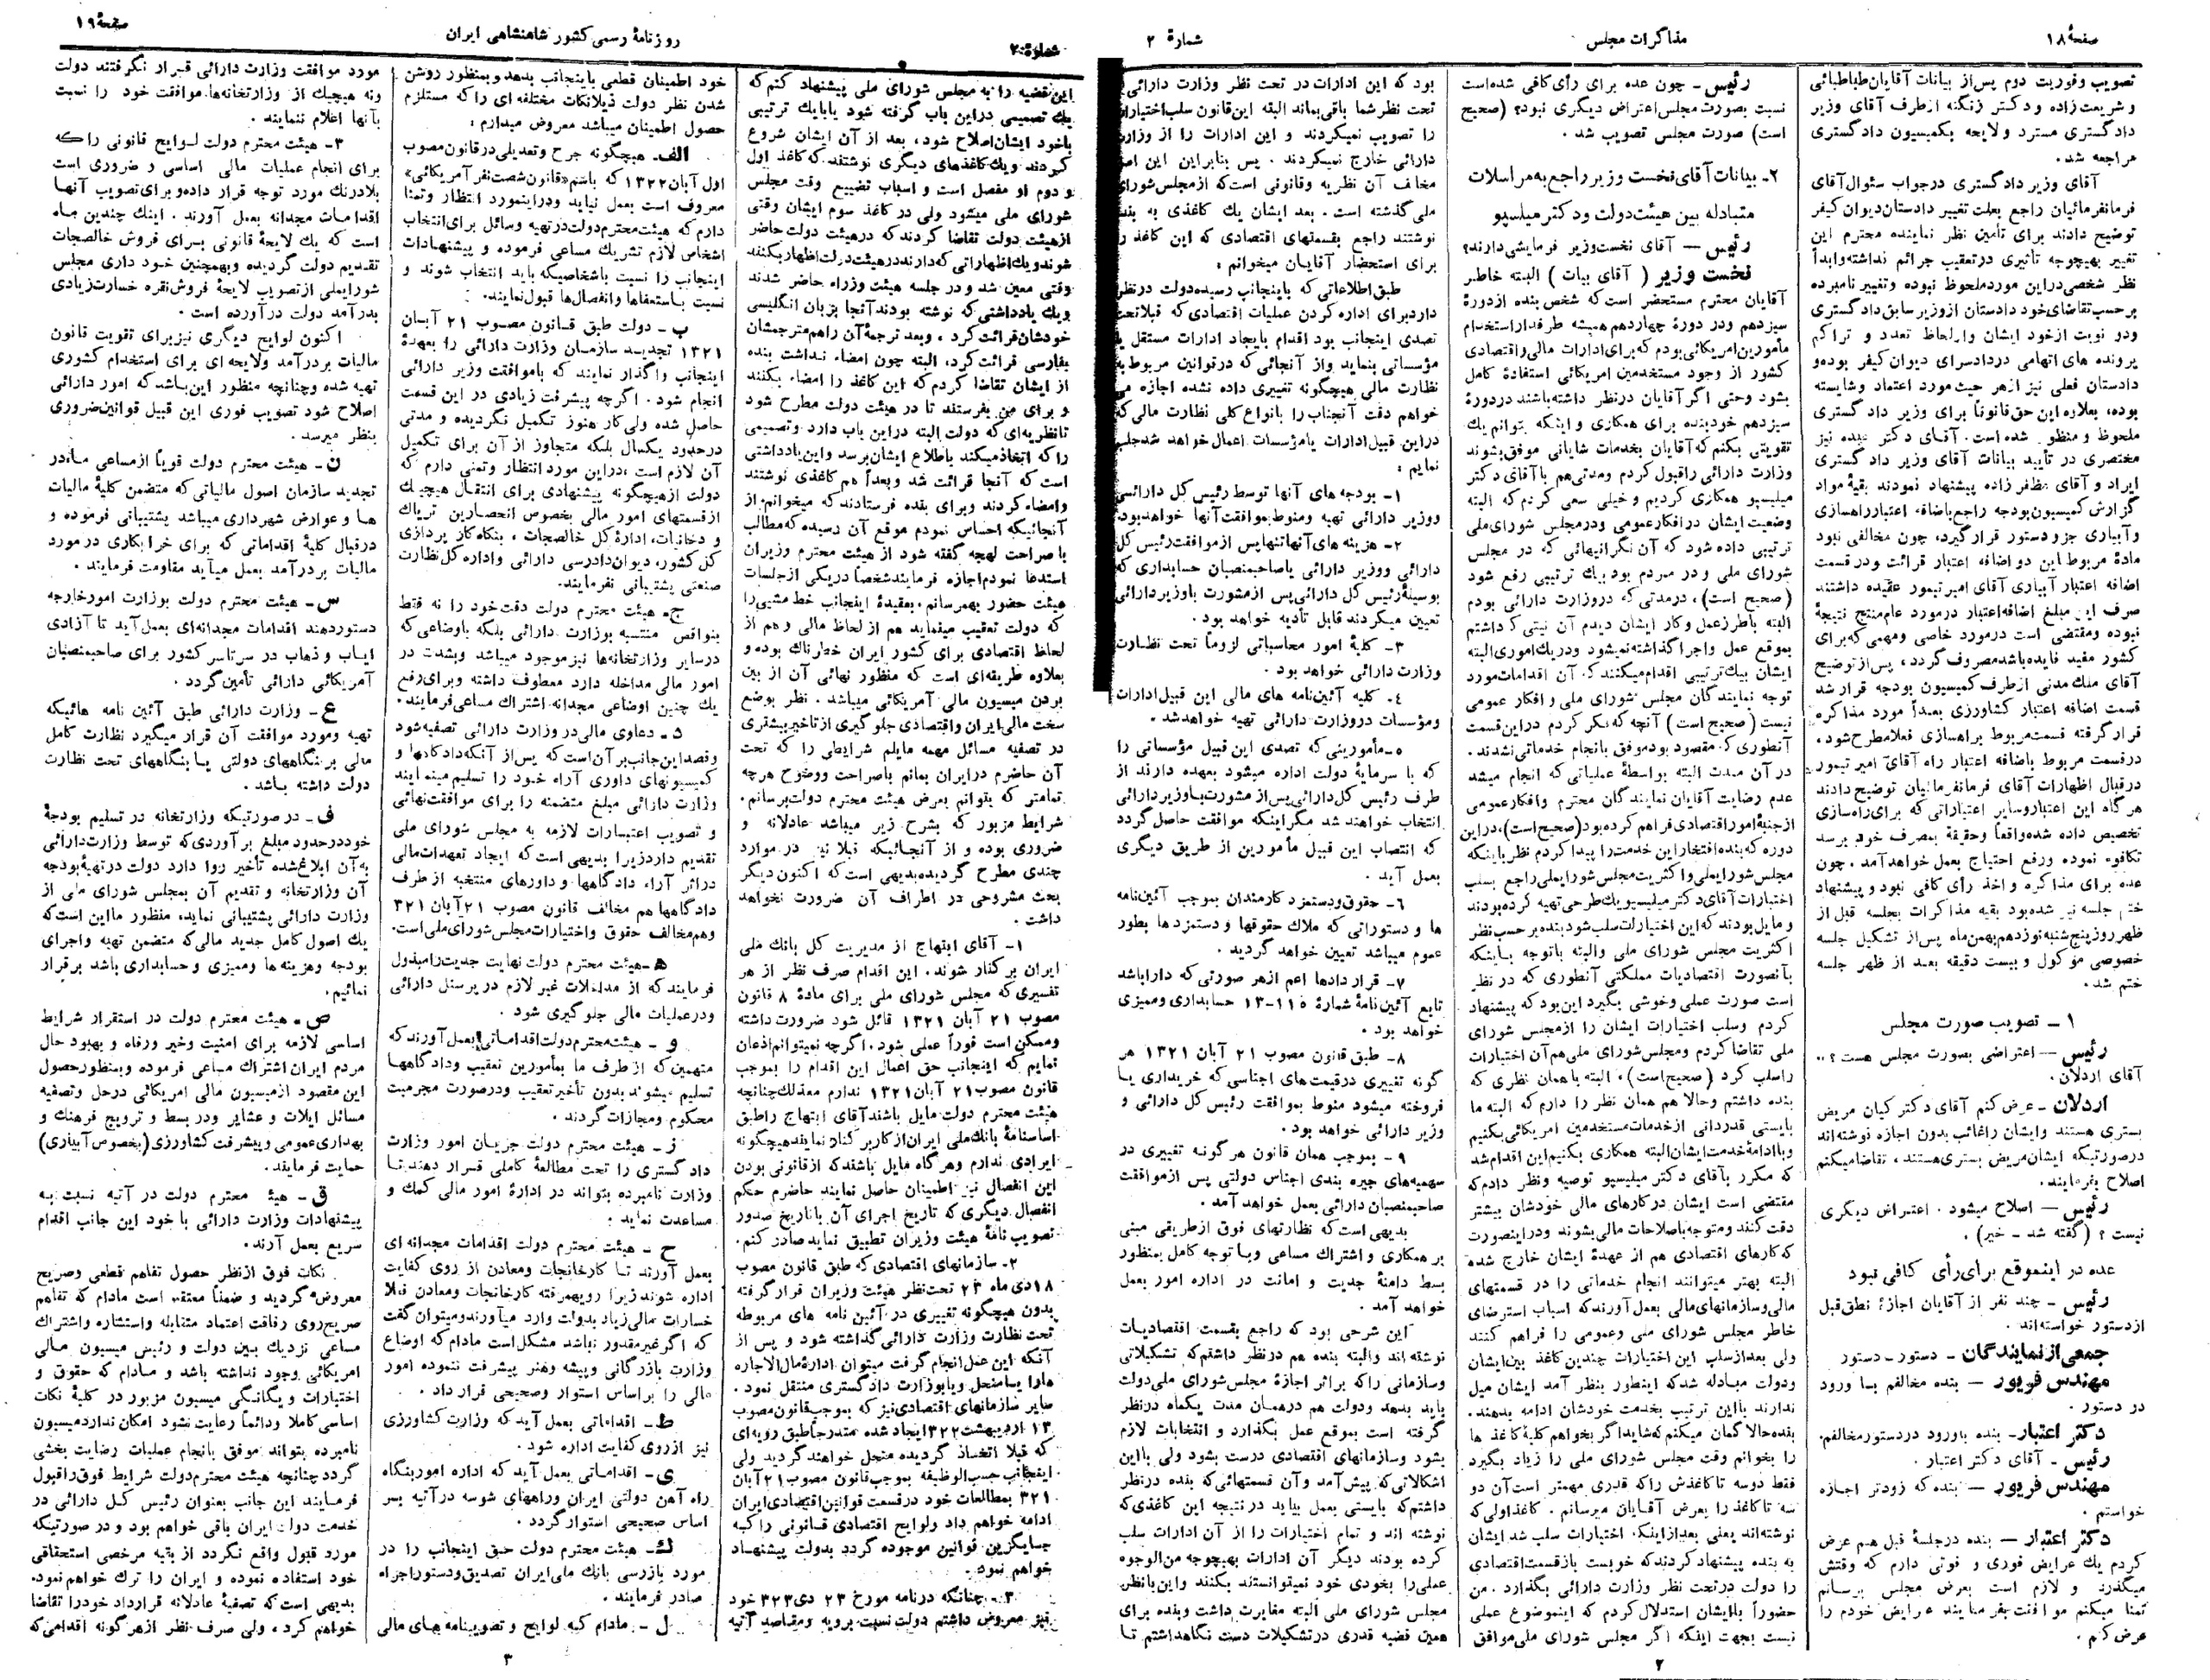 صفحهٔ ۱۸
مذاکرات مجلس
شمارهٔ ۲
تصویب وفوریت دوم پس‌از بیانات آقایان‌طباطبائی
و شریعت‌زاده و دکتر زنگنه ازطرف آقای وزیر
دادگستری مسترد و لایحه بکمیسیون دادگستری
مراجعه شد.
آقای وزیر دادگستری درجواب سئوال‌آقای
فرمانفرمائیان راجع بعلت تغییر دادستان‌دیوان‌کیفر
توضیح دادند برای تأمین نظر نماینده محترم این
تغییر بهیچوجه تأثیری درتعقیب جرائم نداشته‌وابداً
نظر شخصی‌دراین موردملحوظ نبوده وتغییر نامبرده
برحسب‌تقاضای‌خود دادستان ازوزیر سابق‌دادگستری
ودرو نوبت ازخود ایشان وازلحاظ تعدد و تراکم
پرونده های‌اتهامی دردادسرای دیوان‌کیفر بوده‌و
دادستان فعلی نیز ازهر حیث‌مورد اعتماد وشایسته
بوده، بعلاوه‌این حق‌قانوناً برای وزیر دادگستری
ملحوظ و منظور شده‌است. آقای دکتر عبده نیز
مختصری در تأیید بیانات آقای وزیر دادگستری
ایراد و آقای مظفرزاده پیشنهاد نمودند بقیهٔ مواد
گزارش‌کمیسیون‌بودجه راجع‌باضافه اعتبارراهسازی
وآبیاری جزو دستور قرارگیرد، چون مخالفی نبود
مادهٔ مربوط این دو اضافه اعتبار قرائت ودرقسمت
اضافه اعتبار آبیاری آقای امیرتیمور عقیده داشتند
صرف این مبلغ اضافه‌اعتبار درمورد عام‌منتج نتیجهٔ
نبوده ومقتضی است درمورد خاصی ومهمی که‌برای
کشور مفید فایده‌باشدمصرف‌گردد، پس‌ازتوضیح
آقای ملك مدنی ازطرف‌کمیسیون بودجه قرار شد
قسمت اضافه اعتبار کشاورزی بعداً مورد مذاکره
قرارگرفته قسمت‌مربوط براهسازی فعلامطرح‌شود،
درقسمت مربوط باضافه اعتبار راه آقای امیرتیمور
درقبال اظهارات آقای فرمانفرمائیان توضیح‌دادند
هرگاه این اعتباروسایر اعتباراتی که برای‌راه‌سازی
تخصیص داده شده‌واقعاً وحقیقة بمصرف خود برسد
تکافوء نموده ورفع احتیاج بعمل خواهدآمد. چون
عده برای مذاکره واخذ رأی کافی نبود و پیشنهاد
ختم جلسه نیز شده‌بود بقیه مذاکرات بجلسه قبل از
ظهرروزپنج‌شنبه‌نوزدهم‌بهمن‌ماه پس‌از تشکیل جلسه
خصوصی موکول و بیست دقیقه بعد از ظهر جلسه
ختم شد.
۱ ـ تصویب صورت مجلس
رئیس ـ اعتراضی بصورت مجلس هست ؟..
آقای اردلان.
اردلان ـ عرض‌کنم آقای دکتر کیان مریض
بستری هستند وایشان راغائب بدون اجازه نوشته‌اند
درصورتیکه ایشان‌مریض بستری‌هستند، تقاضامیکنم
اصلاح بفرمایند.
رئیس ـ اصلاح میشود. اعتراض دیگری
نیست ؟ (گفته شد ـ خیر).
عده در اینموقع برای‌رأی کافی نبود
رئیس ـ چند نفر از آقایان اجازهٔ نطق‌قبل
ازدستور خواسته‌اند.
جمعی‌ازنمایندگان ـ دستور ـ دستور
مهندس فریور ـ بنده مخالفم بـا ورود
در دستور.
دکتر اعتبار ـ بنده باورود دردستورمخالفم.
رئیس ـ آقای دکتر اعتبار.
مهندس فریور ـ بنده که زودتر اجـازه
خواستم.
دکتر اعتبار ـ بنده درجلسهٔ قبل هـم عرض
کردم یك عرایض فوری و فوتی دارم که وقتش
میگذرد و لازم است بعرض مجلس برسانم
تمنا میکنم موافقت‌بفرمایند عرایض خودم را
عرض‌کنم.
رئیس ـ چون عده برای رأی‌کافی شده‌است
نسبت بصورت مجلس‌اعتراض دیگری نبود؟ (صحیح
است) صورت مجلس تصویب شد.
۲ـ بیانات‌آقای‌نخست وزیرراجع‌به‌مراسلات
متبادله بین هیئت‌دولت ودکتر میلسپو
رئیس ـ آقای نخست‌وزیر فرمایشی‌دارند؟
نخست وزیر ( آقای بیات ) البته خاطر
آقایان محترم مستحضر است‌که شخص‌بنده ازدورهٔ
سیزدهم ودر دورهٔ چهاردهم‌همیشه طرفداراستخدام
مأمورین‌امریکائی‌بودم‌که‌برای‌ادارات مالی‌واقتصادی
کشور از وجود مستخدمین امریکائی استفادهٔ کامل
بشود وحتی اگرآقایان درنظر داشته‌باشند دردورهٔ
سیزدهم خودبنده برای همکاری و اینکه بتوانم‌یك
تقویتی بکنم‌که‌آقایان بخدمات شایانی موفق‌بشوند
وزارت دارائی راقبول‌کردم ومدتی‌هم باآقای دکتر
میلیسپو همکاری کردیم و خیلی سعی کردم‌که البته
وضعیت ایشان درافکارعمومی ودرمجلس شورای‌ملی
ترتیبی داده شود که آن نگرانیهائی که در مجلس
شورای ملی و در مردم بود بیك ترتیبی رفع شود
(صحیح است)، درمدتی‌که دروزارت دارائی بودم
البته باطرزعمل وکار ایشان دیدم آن نیتی‌که داشتم
بموقع عمل واجرا گذاشته‌نمیشود ودریك‌اموری‌البته
ایشان بیك‌ترتیبی اقدام‌میکنندکه آن اقدامات‌مورد
توجه نمایندگان مجلس شورای ملی و افکار عمومی
نیست (صحیح‌است) آنچه‌که‌فکرکردم دراین‌قسمت
آنطوری‌که مقصود بودموفق بانجام خدماتی‌نشدند.
در آن مدت البته بواسطهٔ عملیاتی‌که انجام میشد
عدم رضایت آقایان نمایندگان محترم وافکارعمومی
ازجنبهٔ اموراقتصادی‌فراهم‌کرده‌بود(صحیح‌است)،دراین
دوره‌که‌بنده‌افتخاراین خدمت‌را پیداکردم نظرباینکه
مجلس‌شورایملی واکثریت‌مجلس‌شورایملی‌راجع بسلب
اختیارات‌آقای‌دکترمیلیسپویك‌طرحی‌تهیه‌کرده‌بودند
و مایل‌بودندکه‌این‌اختیارات‌سلب‌شودبنده‌برحسب‌نظر
اکثریت مجلس شورای ملی والبته باتوجه بـاینکه
بآنصورت اقتصادیات مملکتی آنطوری که در نظر
است صورت عملی‌وخوشی بگیرد این‌بودکه پیشنهاد
کردم وسلب اختیارات ایشان را ازمجلس شورای
ملی تقاضاکردم ومجلس‌شورای ملی‌هم‌آن اختیارات
راسلب کرد (صحیح‌است)، البته باهمان نظری که
بنده داشتم وحالا هم همان نظر را دارم‌که البته ما
بایستی قدردانی ازخدمات‌مستخدمین امریکائی‌بکنیم
وباادامهٔ‌خدمت‌ایشان‌البته همکاری بکنیم‌این اقدام‌شد
که مکرر بآقای دکتر میلیسپو توصیه ونظر دادم‌که
مقتضی است ایشان درکارهای مالی خودشان بیشتر
دقت‌کنند ومتوجه‌باصلاحات مالی‌بشوند ودراینصورت
که‌کارهای اقتصادی هم از عهدهٔ ایشان خارج شده
البته بهتر میتوانند انجام خدماتی را در قسمتهای
مالی‌وسازمانهای‌مالی بعمل‌آورندکه اسباب استرضای
خاطر مجلس شورای ملی وعمومی را فراهم کنند
ولی بعدازسلب این‌اختیارات چندین‌کاغذ بین‌ایشان
ودولت مبادله شدکه اینطور بنظر آمد ایشان میل
ندارند بااین ترتیب بخدمت خودشان ادامه بدهند.
بنده‌حالاگمان میکنم‌که‌شایداگر بخواهم‌کلیهٔ‌کاغذها
را بخوانم وقت مجلس شورای ملی را زیاد بگیرد
فقط دوسه تاکاغذش راکه قدری مهمتر است‌آن دو
سه تاکاغذ را بعرض آقـایان میرسانم. کاغذاولی‌که
نوشته‌اند یعنی بعدازاینکه اختیارات سلب شد ایشان
به بنده پیشنهاد کردندکه خوبست بازقسمت‌اقتصادی
را دولت درتحت نظر وزارت دارائی بگذارد. من
حضوراً باایشان استدلال‌کردم که اینموضوع عملی
نیست بجهت اینکه اگر مجلس شورای ملی‌موافق
بود که این ادارات در تحت نظر وزارت دارائی
تحت نظرشما باقی‌بماند البته این‌قانون سلب‌اختیارات
را تصویب نمیکردند و این ادارات را از وزارت
دارائی خارج نمیکردند. پس بنابراین این امر
مخالف آن نظریه وقانونی است‌که ازمجلس‌شورای
ملی‌گذشته است. بعد ایشان یك کاغذی به بنده
نوشتند راجع بقسمتهای اقتصادی که این کاغذ را
برای استحضار آقایان میخوانم :
طبق‌اطلاعاتی که باینجانب رسیده‌دولت درنظر
داردبرای اداره‌کردن عملیات اقتصادی‌که قبلاتحت
تصدی اینجانب بود اقدام بایجاد ادارات مستقل یا
مؤسساتی بنماید واز آنجائی‌که درقوانین مربوط‌به
نظارت مالی هیچگونه تغییری داده نشده اجازه می
خواهم دقت آنجناب را بانواع‌کلی نظارت مالی‌که
دراین قبیل‌ادارات یامؤسسات اعمال خواهد شدجلب
نمایم :
۱ـ بودجه های آنها توسط رئیس کل دارائی
ووزیر دارائی تهیه ومنوط بموافقت‌آنها خواهدبود.
۲ـ هزینه های‌آنهاتنهاپس ازموافقت‌رئیس‌کل
دارائی ووزیر دارائی یاصاحبمنصبان حسابداری که
بوسیلهٔ‌رئیس‌کل دارائی‌پس ازمشورت باوزیردارائی
تعیین میگردند قابل تأدیه خواهد بود.
۳ـ کلیهٔ امور محاسباتی لزوماً تحت نظـارت
وزارت دارائی خواهد بود.
٤ـ کلیه آئین‌نامه های مالی این قبیل‌ادارات
ومؤسسات دروزارت دارائی تهیه خواهدشد.
۵ـ مأمورینی‌که تصدی این قبیل مؤسساتی را
که با سرمایهٔ دولت اداره میشود بعهده دارند از
طرف رئیس کل‌دارائی‌پس‌از مشورت‌باوزیردارائی
انتخاب خواهند شد مگراینکه موافقت حاصل‌گردد
که انتصاب این قبیل مأمورین از طریق دیگری
بعمل آید.
٦ـ حقوق‌ودستمزد کارمندان بموجب آئین‌نامه
ها و دستوراتی که ملاك حقوقها و دستمزدها بطور
عموم میباشد تعیین خواهد گردید.
۷ـ قرار دادها اعم ازهر صورتی که داراباشد
تابع آئین‌نامهٔ شمارهٔ ۱۱۵-۱۳ حسابداری وممیزی
خواهد بود.
۸ـ طبق قانون مصوب ۲۱ آبان ۱۳۲۱ هر
گونه تغییری درقیمت‌های اجناسی که خریداری یـا
فروخته میشود منوط بموافقت رئیس‌کل دارائی و
وزیر دارائی خواهد بود.
۹ـ بموجب همان قانون هرگونه تغییری در
سهمیه‌های جیره بندی اجناس دولتی پس ازموافقت
صاحبمنصبان دارائی بعمل خواهد آمد.
بدیهی است‌که نظارتهای فوق ازطریقی مبنی
بر همکاری و اشتراك مساعی وبـا توجه کامل بمنظور
بسط دامنهٔ جدیت و امانت در اداره امور بعمل
خواهد آمد.
این شرحی بود که راجع بقسمت اقتصادیـات
نوشته‌اند والبته بنده هم درنظر داشتم‌که تشکیلاتی
وسازمانی راکه براثر اجازهٔ مجلس‌شورای ملی‌دولت
باید بدهد ودولت هم درهمـان مدت یکماه درنظر
گرفته است بموقع عمل بگذارد و انتخابات لازم
بشود وسازمانهای اقتصادی درست بشود ولی بااین
اشکالاتی‌که پیش‌آمد وآن قسمتهائی‌که بنده درنظر
داشتم‌که بایستی بعمل بیاید درنتیجه این کاغذی‌که
نوشته اند و تمام اختیارات را از آن ادارات سلب
کرده بودند دیگر آن ادارات بهیچوجه من‌الوجوه
عملی‌را بخودی خود نمیتوانستند بکنند واین‌بانظر
مجلس شورای ملی البته مغایرت داشت وبنده برای
همین قضیه قدری درتشکیلات دست نگاهداشتم تـا
۲
صفحهٔ ۱۹
روزنامهٔ رسمی‌کشور شاهنشاهی ایران
شمارهٔ ۲
این‌قضیه را به مجلس شورای ملی پیشنهاد کنم‌که
یك تصمیمی دراین باب گرفته شود یابایك ترتیبی
باخود ایشان‌اصلاح شود، بعد از آن ایشان شروع
کردند ویك‌کاغذهای دیگری نوشتند که‌کاغذ اول
و دوم او مفصل است و اسباب تضییع وقت مجلس
شورای ملی میشود ولی در کاغذ سوم ایشان وقتی
ازهیئت دولت تقاضا کردند که درهیئت دولت حاضر
شوندویك‌اظهاراتی‌که‌دارنددرهیئت‌دولت‌اظهاربکنند
وقتی معین شد و در جلسه هیئت وزراء حاضر شدند
ویك یادداشتی‌که نوشته بودندآنجا بزبان انگلیسی
خودشان‌قرائت‌کرد، وبعد ترجمهٔ‌آن راهم‌مترجمشان
بفارسی قرائت‌کرد، البته چون امضاء نـداشت بنده
از ایشان تقاضا کردم‌که این کاغذ را امضاء بکنند
و برای من بفرستند تا در هیئت دولت مطرح شود
تانظریه‌ای که دولت البته دراین باب دارد وتصمیمی
راکه اتخاذمیکند باطلاع ایشان‌برسد واین‌یادداشتی
است که آنجا قرائت شد وبعداً هم کاغذی نوشتند
وامضاءکردند وبرای بنده فرستادندکه میخوانم:از
آنجائیکه احساس نمودم موقع آن رسیده که‌مطالب
با صراحت لهجه گفته شود از هیئت محترم وزیران
استدعا نمودم‌اجازه فرمایندشخصاً دریکی ازجلسات
هیئت حضور بهمرسانم. بعقیدهٔ اینجانب خط مشیی‌را
که دولت تعقیب مینماید هم از لحاظ مالی و هم از
لحاظ اقتصادی برای کشور ایران خطرناك بوده و
بعلاوه طریقه‌ای است که منظور نهائی آن از بین
بردن میسیون مالی آمریکائی میباشد. نظر بوضع
سخت مالی‌ایران واقتصادی جلوگیری ازتأخیربیشتری
در تصفیه مسائل مهمه مایلم شرایطی را که تحت
آن حاضرم درایران بمانم باصراحت ووضوح هرچه
تمامتر که بتوانم بعرض هیئت محترم دولت‌برسانم.
شرایط مزبور که بشرح زیر میباشد عادلانه و
ضروری بوده و از آنجـائیکه قبلا نیز در موارد
چندی مطرح گردیده‌بدیهی است‌که اکنون‌دیگر
بحث مشروحی در اطراف آن ضرورت نخواهد
داشت.
۱ـ آقای ابتهاج از مدیریت کل بانك ملی
ایران برکنار شوند. این اقدام صرف نظر از هر
تفسیری‌که مجلس شورای ملی برای مادهٔ ۸ قانون
مصوب ۲۱ آبان ۱۳۲۱ قائل شود ضرورت داشته
وممکن است فوراً عملی شود. اگرچه نمیتوانم‌اذعان
نمایم‌که اینجانب حق اعمال این اقدام را بموجب
قانون مصوب ۲۱ آبان۱۳۲۱ ندارم معذلك‌چنانچه
هیئت محترم دولت مایل باشندآقای ابتهاج راطبق
اساسنامهٔ بانك‌ملی ایران‌ازکار برکنار نمایندهیچگونه
ایرادی ندارم وهرگاه مایل باشندکه ازقانونی بودن
این انفصال نیز اطمینان حاصل نمایند حاضرم حکم
انفصال دیگری‌که تاریخ اجرای آن باتاریخ صدور
تصویب نامهٔ هیئت وزیران تطبیق نماید صادرکنم.
۲ـ سازمانهای اقتصادی‌که طبق قانون مصوب
۱۸دی‌ماه ۲۳ تحت‌نظر هیئت وزیران قرارگرفته
بدون هیچگونه تغییری در آئین نامه های مربوطه
تحت نظارت وزارت دارائی‌گذاشته شود و پس از
آنکه این‌عمل‌انجام‌گرفت میتوان ادارهٔ‌مال‌الاجاره
هارا یامنحل ویابوزارت دادگستری منتقل نمود.
سایر سازمانهای اقتصادی‌نیزکه بموجب‌قانون‌مصوب
۱۳ اردیبهشت۱۳۲۲ایجاد شده متدرجاًطبق رویه‌ای
که قبلا اتخـاذ گردیده منحل خواهندگردید ولی
اینجانب حسب‌الوظیفه بموجب‌قانون مصوب۲۱آبان
۱۳۲۱ بمطالعات خود درقسمت قوانین‌اقتصادی‌ایران
ادامه خواهم داد ولوایح اقتصادی قـانونی راکه
جـایگزین قوانین موجوده گردد بدولت پیشنهـاد
خواهم نمود.
۳ـ چنانکه درنامه مورخ ۲۳ دی۳۲۳ خود
نیز معروض داشتم دولت نسبت برویه ومقاصد آتیه
خود اطمینان قطعی باینجانب بدهد وبمنظور روشن
شدن نظر دولت ذیلانکات مختلفه ای راکه مستلزم
حصول اطمینان میباشد معروض میدارم :
الف ـ هیچگونه جرح وتعدیلی درقانون‌مصوب
اول‌آبان۱۳۲۲ که باسم«قانون‌شصت‌نفرآمریکائی»
معروف است بعمل نیاید ودراینمورد انتظار وتمنا
دارم که هیئت‌محترم‌دولت‌درتهیه وسائل برای‌انتخاب
اشخاص لازم تشریك مساعی فرموده و پیشنهادات
اینجانب را نسبت باشخاصیکه باید انتخاب شوند و
نسبت بـاستعفاها وانفصال‌ها قبول‌نمایند.
ب ـ دولت طبق قـانون مصوب ۲۱ آبـان
۱۳۲۱ تجدیـد سازمـان وزارت دارائی را بعهدهٔ
اینجانب واگذار نمایند که باموافقت وزیر دارائی
انجام شود. اگرچه پیشرفت زیادی در این قسمت
حاصل شده ولی‌کار هنوز تکمیل نگردیده و مدتی
درحدود یکسال بلکه متجاوز از آن برای تکمیل
آن لازم است، دراین مورد انتظار وتمنی دارم که
دولت ازهیچگونه پیشنهادی برای انتقال هیچیك
ازقسمتهای امور مالی بخصوص انحصارین تریاك
و دخانیات، ادارهٔ کل خالصجات، بنگاه‌کار پردازی
کل‌کشور، دیوان‌دادرسی دارائی واداره‌کل‌نظارت
صنعتی پشتیبانی نفرمایند.
ج ـ هیئت محترم دولت دقت‌خود را نه فقط
بنواقص منتسبه بوزارت دارائی بلکه باوضاعی‌که
درسایر وزارتخانه‌ها نیزموجود میباشد وبشدت در
امور مالی مداخله دارد معطوف داشته وبرای‌رفع
یك چنین اوضاعی مجدانه‌اشتراك مساعی‌فرمایند.
د ـ دعاوی مالی‌در وزارت دارائی تصفیه‌شود
وقصداین‌جانب‌بر آن‌است‌که پس‌از آنکه‌دادگاهها و
کمیسیونهای داوری آراء خـود را تسلیم مینمایند
وزارت دارائی مبلغ متضمنه را برای موافقت‌نهائی
و تصویب اعتبـارات لازمه به مجلس شورای ملی
تقدیم داردزیرا بدیهی است‌که ایجاد تعهدات‌مالی
دراثر آراء دادگاهها و داورهای منتخبه ازطرف
دادگاهها هم مخالف قانون مصوب ۲۱آبان ۱۳۲۱
وهم‌مخالف حقوق واختیارات‌مجلس‌شورای‌ملی‌است.
ه ـ هیئت محترم دولت نهایت جدیت‌رامبذول
فرمایندکه از مداخلات غیر لازم در پرسنل دارائی
ودرعملیات مالی جلوگیری شود.
و ـ هیئت‌محترم‌دولت‌اقداماتی‌بعمل‌آورندکه
متهمین‌که ازطرف ما بمأمورین تعقیب ودادگاهها
تسلیم میشوند بدون تأخیرتعقیب ودرصورت مجرمیت
محکوم ومجازات‌گردند.
ز ـ هیئت محترم دولت جریـان امور وزارت
دادگستری را تحت مطالعهٔ کاملی قـرار دهند تـا
وزارت نامبرده بتواند در ادارهٔ امور مالی کمك و
مساعدت نماید.
ح ـ هیئت محترم دولت اقدامات مجدانه‌ای
بعمل آورند تـا کارخانجات ومعادن از روی کفایت
اداره شوند زیرا رویهمرفته کارخانجات ومعادن فعلا
خسارات مالی‌زیاد بدولت وارد میآورندومیتوان‌گفت
که اگرغیرمقدور نباشد مشکل‌است مادام‌که اوضاع
وزارت بازرگانی وپیشه وهنر پیشرفت ننموده امور
مالی را براساس استوار وصحیحی قرار داد.
ط ـ اقداماتی بعمل آید که وزارت‌کشاورزی
نیز ازروی‌کفایت اداره شود.
ی ـ اقدامـاتی بعمل آید که اداره اموربنگاه
راه آهن دولتی ایران وراههای شوسه درآتیه بـر
اساس صحیحی استوارگردد.
ك ـ هیئت محترم دولت حق اینجانب را در
مورد بازرسی بانك ملی‌ایران تصدیق‌ودستوراجراء
صادر فرمایند.
ل ـ مادام کـه لوایح و تصویبنامه های مالی
مورد موافقت وزارت دارائی قـرار نگرفتند دولت
ونه هیچیك از وزارتخانه‌ها، موافقت خود را نسبت
بآنها اعلام ننمایند.
۳ـ هیئت محترم دولت لـوایح قانونی راکه
برای انجام عملیات مالی اساسی و ضروری است
بلادرنك مورد توجه قرار داده‌و برای‌تصویب آنهـا
اقدامـات مجدانه بعمل آورند. اینك چندین مـاه
است که یك لایحهٔ قانونی بـرای فروش خالصجات
تقدیم دولت گردیده وبهمچنین خود داری مجلس
شورایملی ازتصویب لایحهٔ فروش‌نقره خسارت‌زیادی
بدرآمد دولت درآورده است.
اکنون لوایح دیگری نیزبرای تقویت قانون
مالیات بردرآمد ولایحه‌ای برای استخدام کشوری
تهیه شده وچنانچه منظور این‌باشدکه امور دارائی
اصلاح شود تصویب فوری این قبیل قوانین‌ضروری
بنظر میرسد.
ن ـ هیئت محترم دولت قویاً ازمساعی مـا در
تجدید سازمان اصول مالیاتی‌که متضمن کلیهٔ مالیات
هـا وعوارض شهرداری میباشد پشتیبانی فرموده و
درقبال کلیهٔ اقداماتی که برای خرابکاری درمورد
مالیات بردرآمد بعمل میآید مقاومت فرمایند.
س ـ هیئت محترم دولت بوزارت امورخارجه
دستوردهند اقدامات مجدانه‌ای بعمل‌آید تا آزادی
ایـاب وذهاب در سرتاسر کشور برای صاحبمنصبان
آمریکائی دارائی تأمین‌گردد.
ع ـ وزارت دارائی طبق آئین نامه هائیکه
تهیه ومورد موافقت آن قرار میگیرد نظارت کامل
مالی بر بنگاههای دولتی یـا بنگاههای تحت نظارت
دولت داشته باشد.
ف ـ در صورتیکه وزارتخانه در تسلیم بودجهٔ
خوددرحدود مبلغ برآوردی‌که توسط وزارت‌دارائی
به‌آن ابلاغ‌شده تأخیر روا دارد دولت درتهیهٔ‌بودجه
آن وزارتخانه و تقدیم آن بمجلس شورای ملی از
وزارت دارائی پشتیبانی نماید، منظور مااین‌است‌که
یك اصول کامل جدید مالی‌که متضمن تهیه واجرای
بودجه وهزینه‌ها وممیزی و حسابداری باشد برقرار
نمائیم.
ص ـ هیئت محترم دولت در استقرار شرایط
اساسی لازمه برای امنیت وخیر ورفاه و بهبود حال
مردم ایران اشتراك مساعی فرموده وبمنظورحصول
این مقصود ازمیسیون مالی امریکائی درحل وتصفیه
مسائل ایلات و عشایر ودر بسط و ترویج فرهنك و
بهداری‌عمومی وپیشرفت‌کشاورزی(بخصوص‌آبیاری)
حمایت فرمایند.
ق ـ هیئت محترم دولت در آتیه نسبت بـه
پیشنهادات وزارت دارائی با خود این جانب اقدام
سریع بعمل آرند.
نکات فوق ازنظر حصول تفاهم قطعی وصریح
معروض گردید و ضمناً معتقد است مادام که تفاهم
صریح‌روی رفاقت اعتماد متقابله واستشاره واشتراك
مساعی نزدیك بین دولت و رئیس میسیون مـالی
امریکائی وجود نداشته باشد و مـادام که حقوق و
اختیارات و یگانگی میسیون مزبور در کلیهٔ نکات
اساسی‌کاملا ودائماً رعایت‌نشود امکان نداردمیسیون
نامبرده بتواند موفق بانجام عملیات رضایت بخشی
گردد چنانچه هیئت محترم‌دولت شرایط فوق‌راقبول
فرمـایند این جانب بعنوان رئیس کـل دارائی در
خدمت دولت ایران باقی خواهم بود و در صورتیکه
مورد قبول واقع نگردد از بقیه مرخصی استحقاقی
خود استفاده نموده و ایران را ترك خواهم‌نمود،
بدیهی است‌که تصفیهٔ عادلانه قرارداد خودرا تقاضا
خواهم کرد، ولی صرف نظر ازهرگونه اقدامی‌که
۳